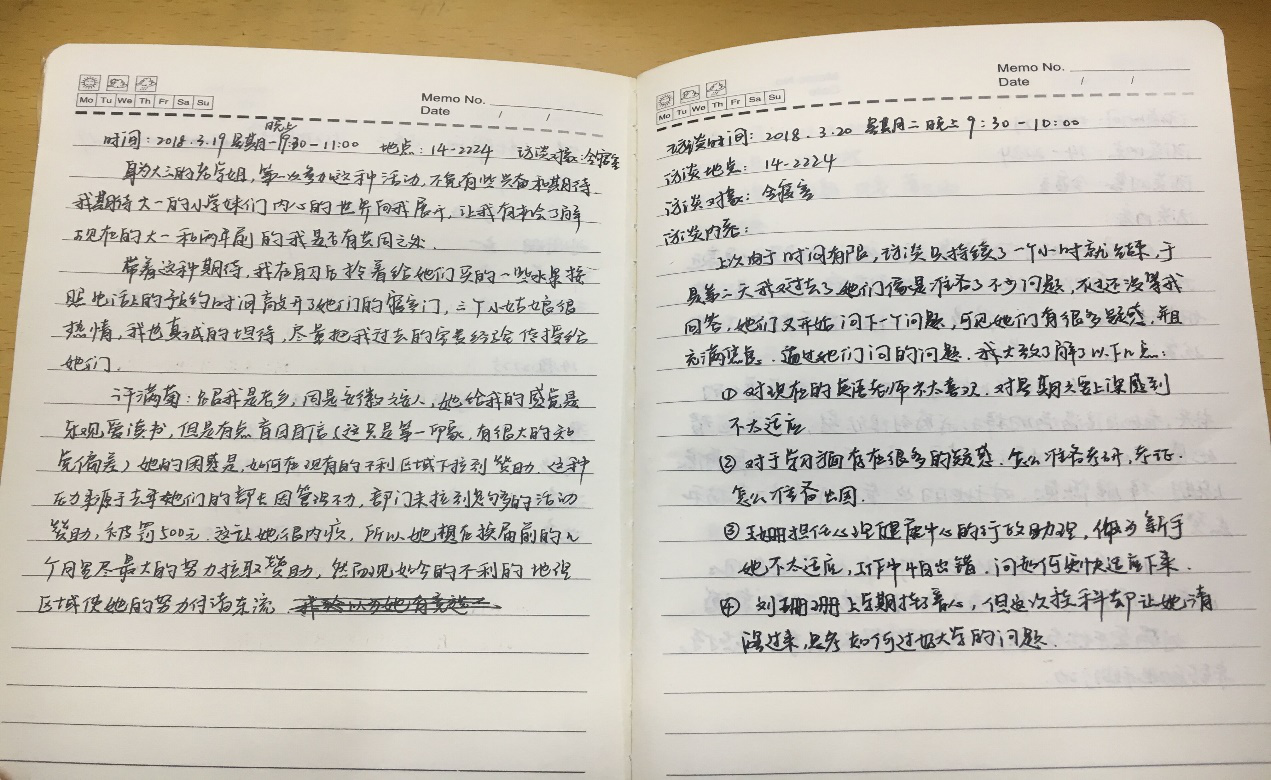 Mo Tu We Th Fr Sa Su
Memo No.
Date / /
晚上
时间：2018.3.19 星期一 9:30-11:00 地点：14-2224 访谈对象：全寝室
身为大三的老学姐，第一次参加这种活动，不免有些兴奋和期待，
我期待大一的小学妹们内心的世界向我展示，让我有机会了解
现在的大一和两年前的我是否有共同之处．
带着这种期待，我在自习后拎着给她们买的一些水果按
照电话上的预约时间敲开了她们的寝室门，三个小姑娘很
热情，我也真诚的坦待，尽量把我过去的宝贵经验传授给
她们．
汪满菊：绍我是老乡，同是安徽六安人，她给我的感觉是
乐观爱读书，但是有点盲目自信（这只是第一印象，有很大的知
觉偏差）她的困惑是，如何在现有的不利区域下拉到赞助，这种
压力来源于去年她们的部长因管理不力，部门未拉到足够多的活动
赞助，被罚500元．这让她很内疚，所以她想在换届前的几
个月里尽最大的努力拉取赞助，然而现如今的不利的地理
区域使她的努力付诸东流
Mo Tu We Th Fr Sa Su
Memo No.
Date / /
访谈时间：2018.3.20 星期二晚上9:30-10:00
访谈地点：14-2224
访谈对象：全寝室
访谈内容：
上次由于时间有限，访谈只持续了一个小时就结束，于
是第二天我又过去了她们像是准备了不少问题，不过还没等我
回答，她们又开始问下一个问题，可见她们有很多疑惑，并且
充满焦虑．通过她们问的问题．我大致了解了以下几点：
① 对现在的英语老师不太喜欢．对星期六要上课感到
不太适应
② 对于学习方面存在很多的疑惑．怎么准备考研，考证．
怎么准备出国．
③ 担任心理健康中心的行政助理，做为新手
她不太适应，工作中怕出错．问如何更快适应下来．
④ 刘珊珊上学期挂了高心，但这次挂科却让她清
醒过来，思考如何过好大学的问题．